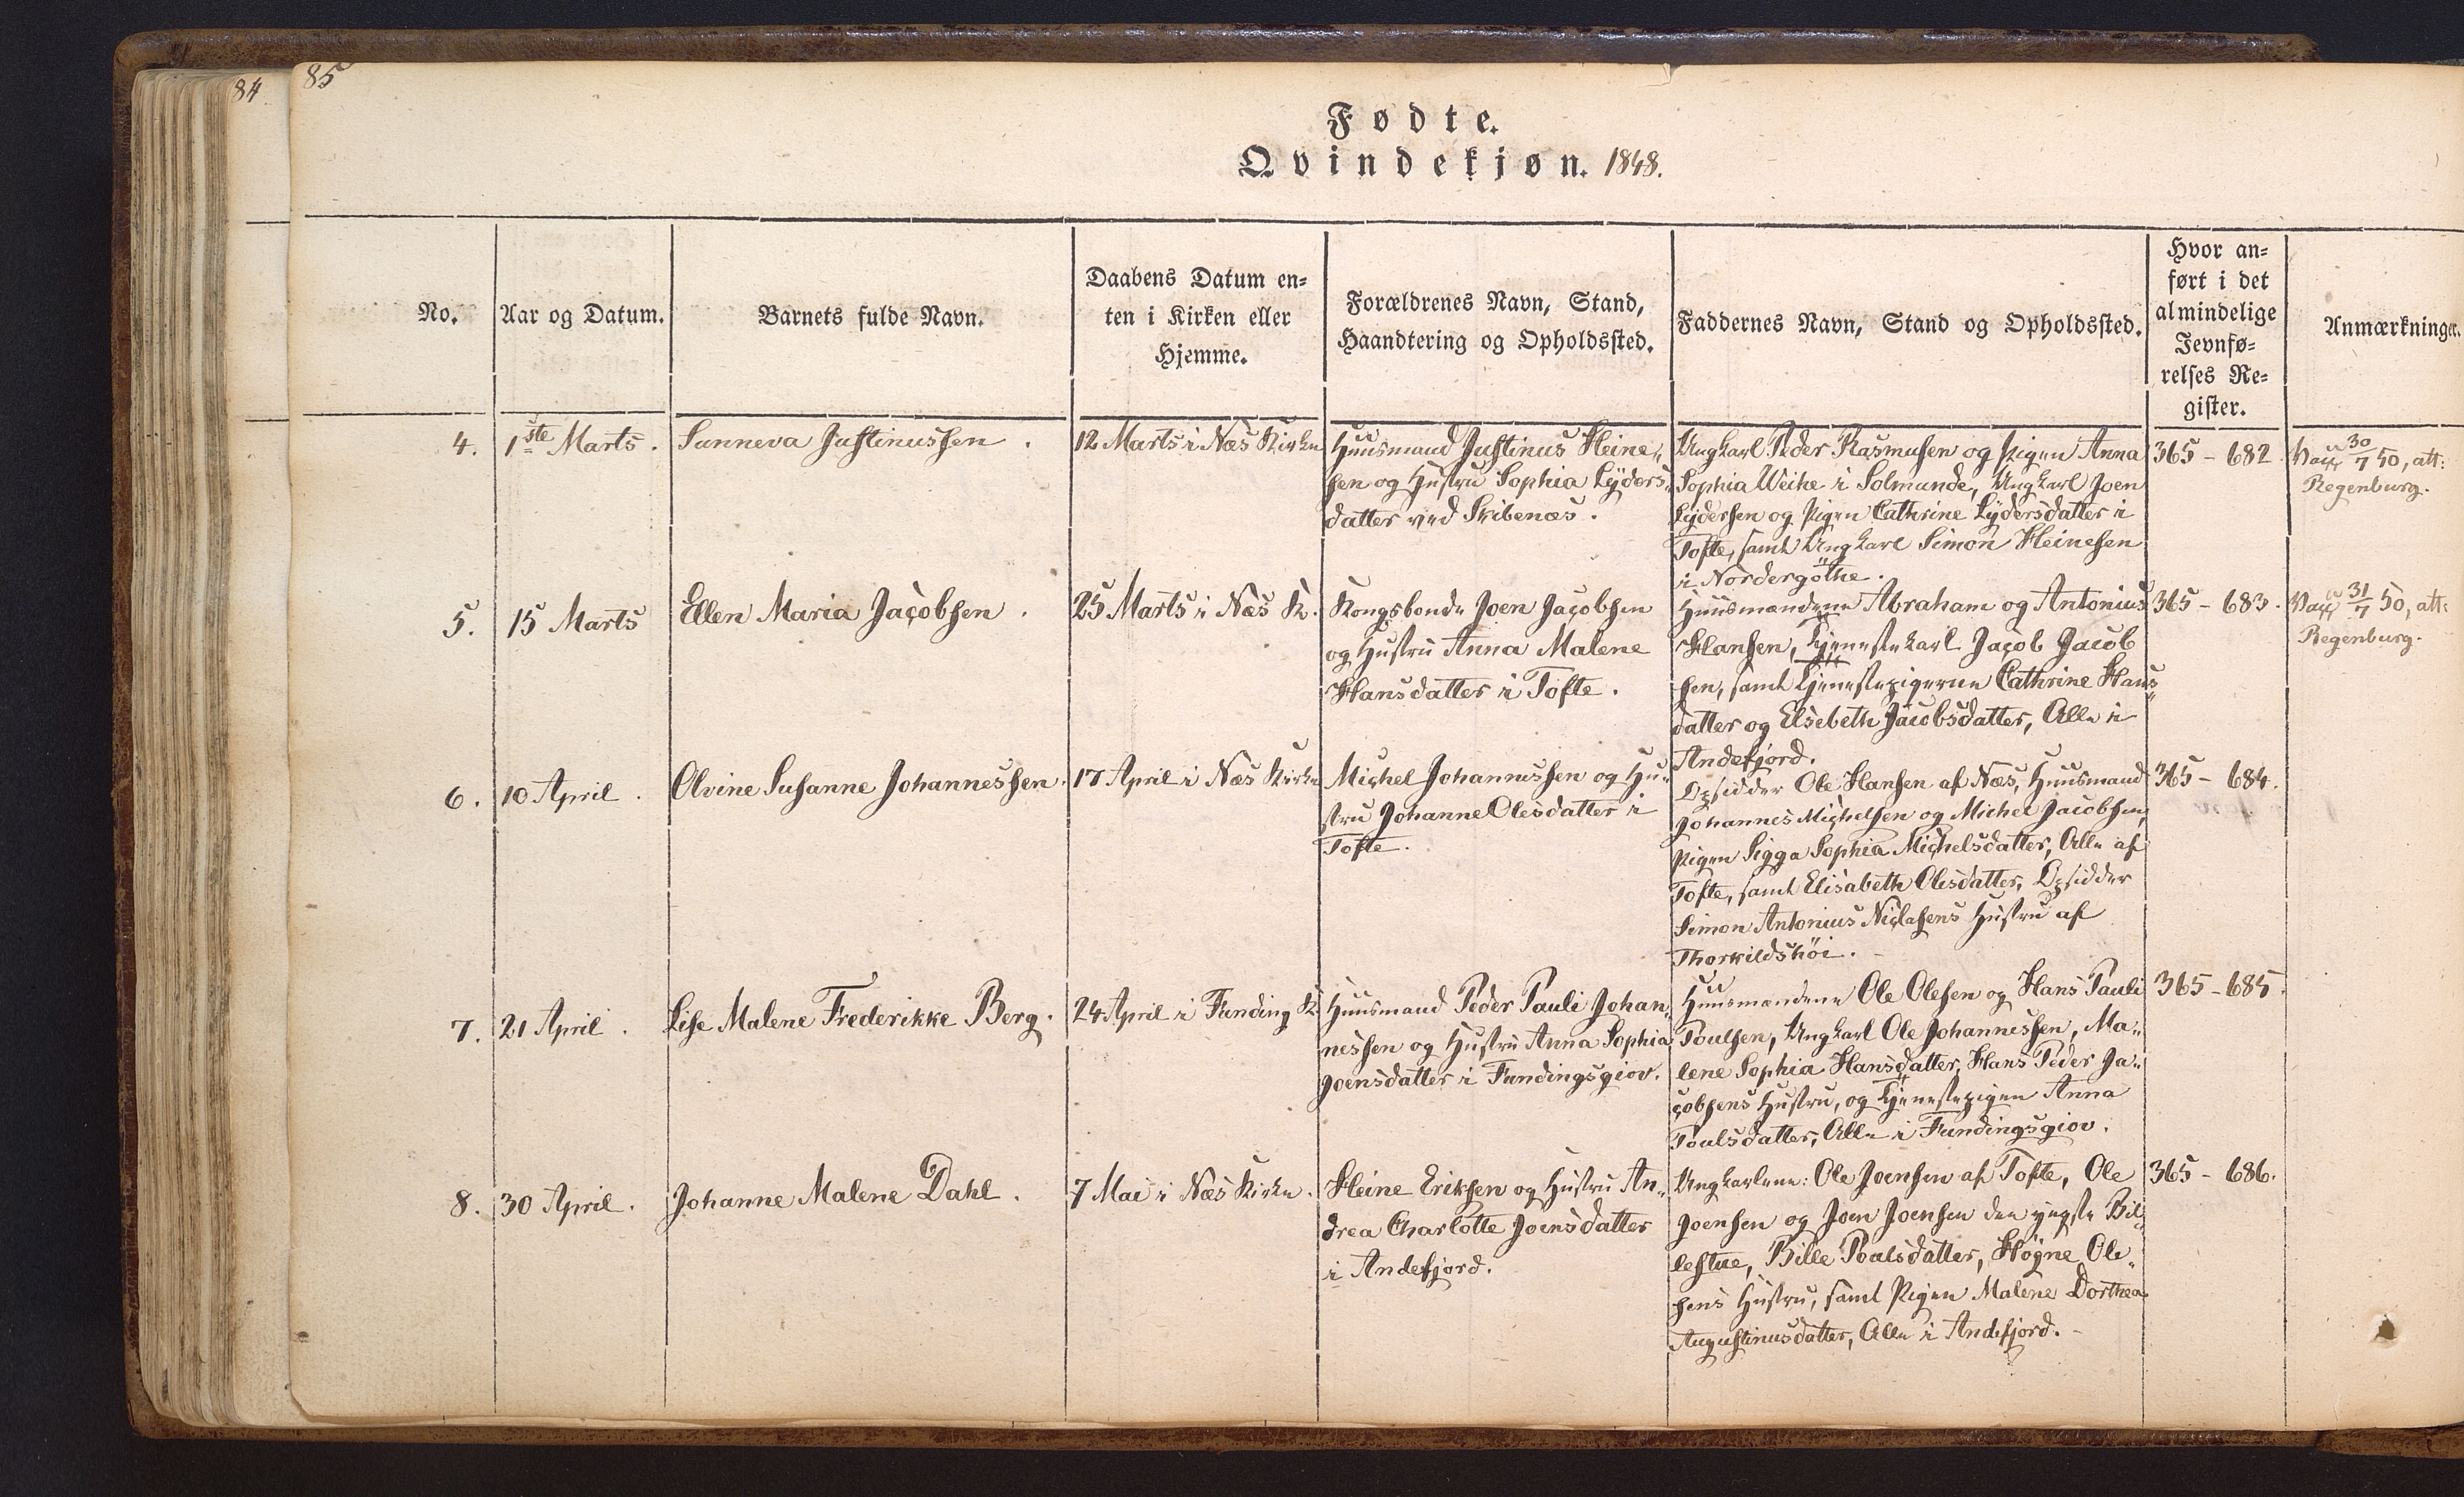 84
85
Fødte.
Qvindekjøn. 1848.
No.
Aar og Datum.
Barnets fulde Navn.
Daabens Datum en-
ten i Kirken eller
Hjemme.
Forældrenes Navn, Stand,
Haandtering og Opholdssted.
Faddernes Navn, Stand og Opholdssted.
Hvor an-
ført i det
almindelige
Jevnfø-
relses Re-
gister.
Anmærkninger.
4.
1ste Marts.
Sunneva Justinussen.
12 Marts i Næs Kirke
Huusmand Justinus Heine„
sen og Hustru Sophia Lyders„
datter ved Skibenæs.
Ungkarl Peder Rasmusen og Pigen Anna
Sophia Weihe i Solmunde, Ungkarl Joen
Lydersen og Pigen Cathrine Lydersdatter i
Tofte, samt Ungkarl Simon Heinesen
i Nordergøthe.
365 - 682
Vacc 30/7 50, att:
Regenburg.
5.
15 Marts
Ellen Maria Jacobsen.
25 Marts i Næs K.
Kongsbonde Joen Jacobsen
og Hustru Anna Malene
Hansdatter i Tofte.
Huusmændene Abraham og Antonius
Hansen, Tjenestekarl Jacob Jacob
sen, samt Tjenestepigerne Cathrine Hans„
datter og Elsebeth Jacobsdatter, Alle i
Andefjord.
365 - 683.
Vacc 31/7 50, att:
Regenburg.
6.
10 April.
Olvine Susanne Johannessen.
17 April i Næs Kirke
Michel Johannessen og Hu„
stru Johanne Olesdatter i
Tofte.
Opsidder Ole Hansen af Næs, Huusmand
Johannes Michelsen og Michel Jacobsen,
Pigen Sigga Sophia Michelsdatter, Alle af
Tofte, samt Elisabeth Olesdatter, Opsidder
Simon Antonius Niclasens Hustru af
Thorkildshöi. -
365 - 684.
7.
21 April.
Lise Malene Frederikke Berg.
24 April i Funding K
Huusmand Peder Pauli Johan„
nessen og Hustru Anna Sophia
Joensdatter i Fundingsgiov.
Huusmændene Ole Olesen og Hans Pauli
Poulsen, Ungkarl Ole Johannessen, Ma„
lene Sophia Hansdatter, Hans Peder Ja„
cobsens Hustru, og Tjenestepigen Anna
Poulsdatter, Alle i Fundingsgiov.
365 - 685.
8.
30 April.
Johanne Malene Dahl.
7 Mai i Næs Kirke.
Heine Eriksen og Hustru An„
drea Charlotte Joensdatter
i Andefjord.
Ungkarlene: Ole Joensen af Tofte, Ole
Joensen og Joen Joensen den yngste Bil„
lestue, Bille Poulsdatter, Høgne Ole„
sens Hustru, samt Pigen Malene Dorthea
Augustinusdatter, Alle i Andefjord. -
365 - 686.